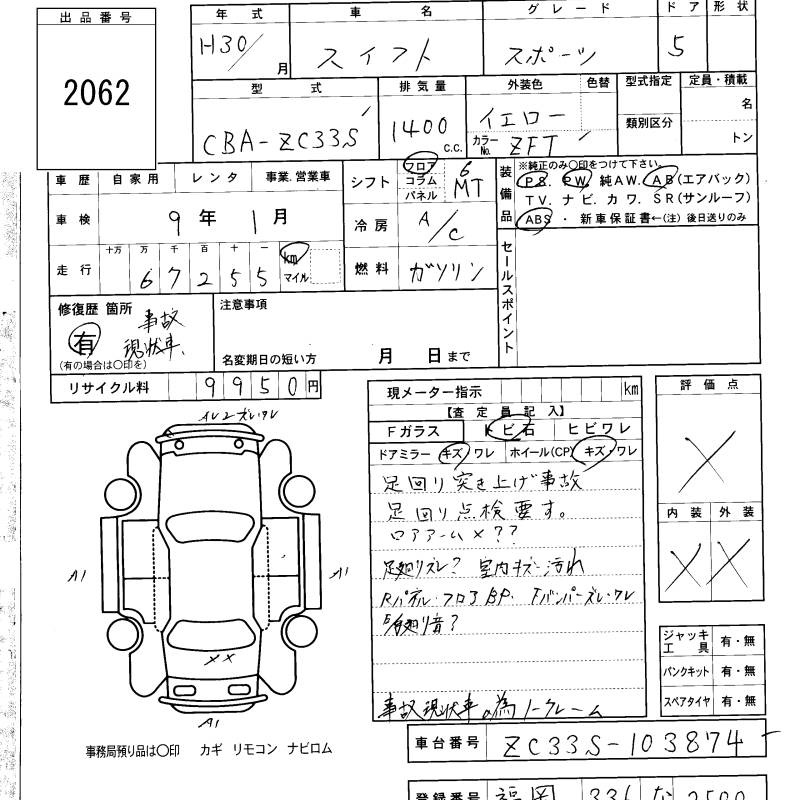 出品番号 年式 車名 グレード ドア 形状
2062 H30/ 月 スイフト スポーツ 5
型式 排気量 外装色 色替 型式指定 定員・積載
CBA-ZC33S 1400 c.c. イエロー 名
カラーNo. ZFT 類別区分 トン
車歴 自家用 レンタ 事業.営業車 シフト フロア コラム パネル 6 MT 装備品 ※純正のみ○印をつけて下さい。
PS. PW. 純AW. AB(エアバック)
TV. ナビ. カワ. SR(サンルーフ)
ABS ・ 新車保証書←(注)後日送りのみ
車検 9年 1月 冷房 A/C
走行 十万 万 千 百 十 一 km マイル
67255 燃料 ガソリン セールスポイント
修復歴 箇所 注意事項
有 事故
現状車.
(有の場合は○印を) 名変期日の短い方 月 日まで
リサイクル料 9950円
現メーター指示 km
【査定員記入】
Fガラス トビ石 ヒビワレ
ドアミラー キズ・ワレ ホイール(CP) キズ・ワレ
足回り突き上げ事故
足回り点検要す。
ロアアーム×??
足廻りズレ? 室内キズ・汚れ
Rパネル・フロアBP. Fバンパーズレ・ワレ
足廻り音?
事故現状車の為ノークレーム
評価点
×
内装 外装
× ×
A1
A1
××
A1
ジャッキ工具 有・無
パンクキット 有・無
スペアタイヤ 有・無
事務局預り品は○印 カギ リモコン ナビロム
車台番号 ZC33S-103874
登録番号 福岡 331 な 2500